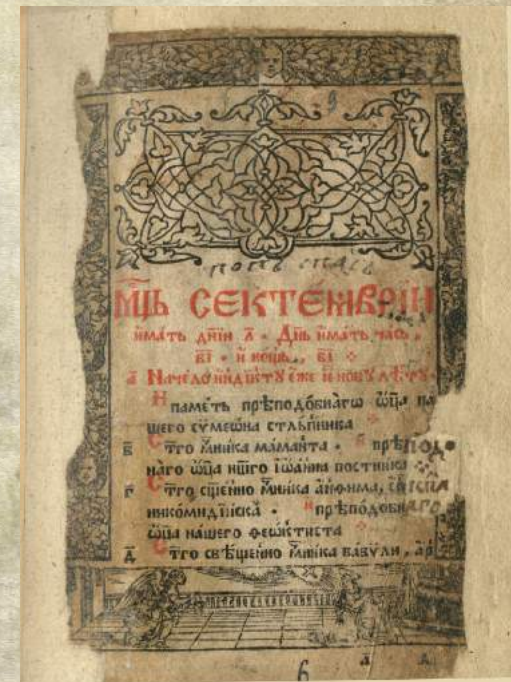 мⷭ҇ць сектемврїи
и҆мать дні́и л҃ · Дн҃ь и҆мать часѡ,
в҃і · и҆ нощь, в҃і
а҃ Начело и҆ндїкту є҆же и҆ новꙋ лѣтꙋ
И паметь прѣподо́бнагѡ ѡ҆ц҃а на
шего сѵмеѡна стль́пника
в҃ Ст҃го мⷱ҇ника мама́нта · прѣподо
наго ѡ҆ц҃а нш҃го їѡа́нна постника
г҃ Ст҃го сщ҃е́нно мⷱ҇ника а҆нѳима,
никомидїиска · И прѣподобнаго
ѡ҆ц҃а нашего ѳеѡктиста
д҃ Ст҃го свѣще́нно мⷱ҇ника вавули, ар
6